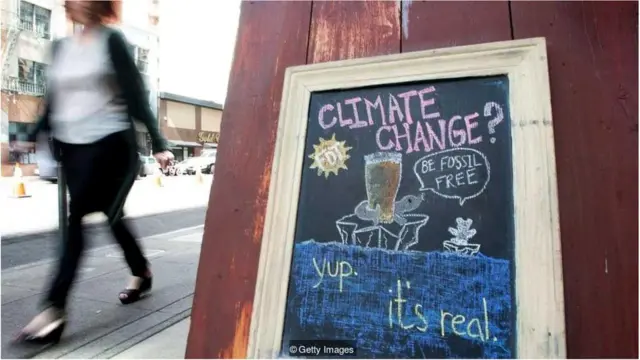 CLIMATE
CHANGE?
BE FOSSIL
FREE
yup.
it's real.
© Getty Images